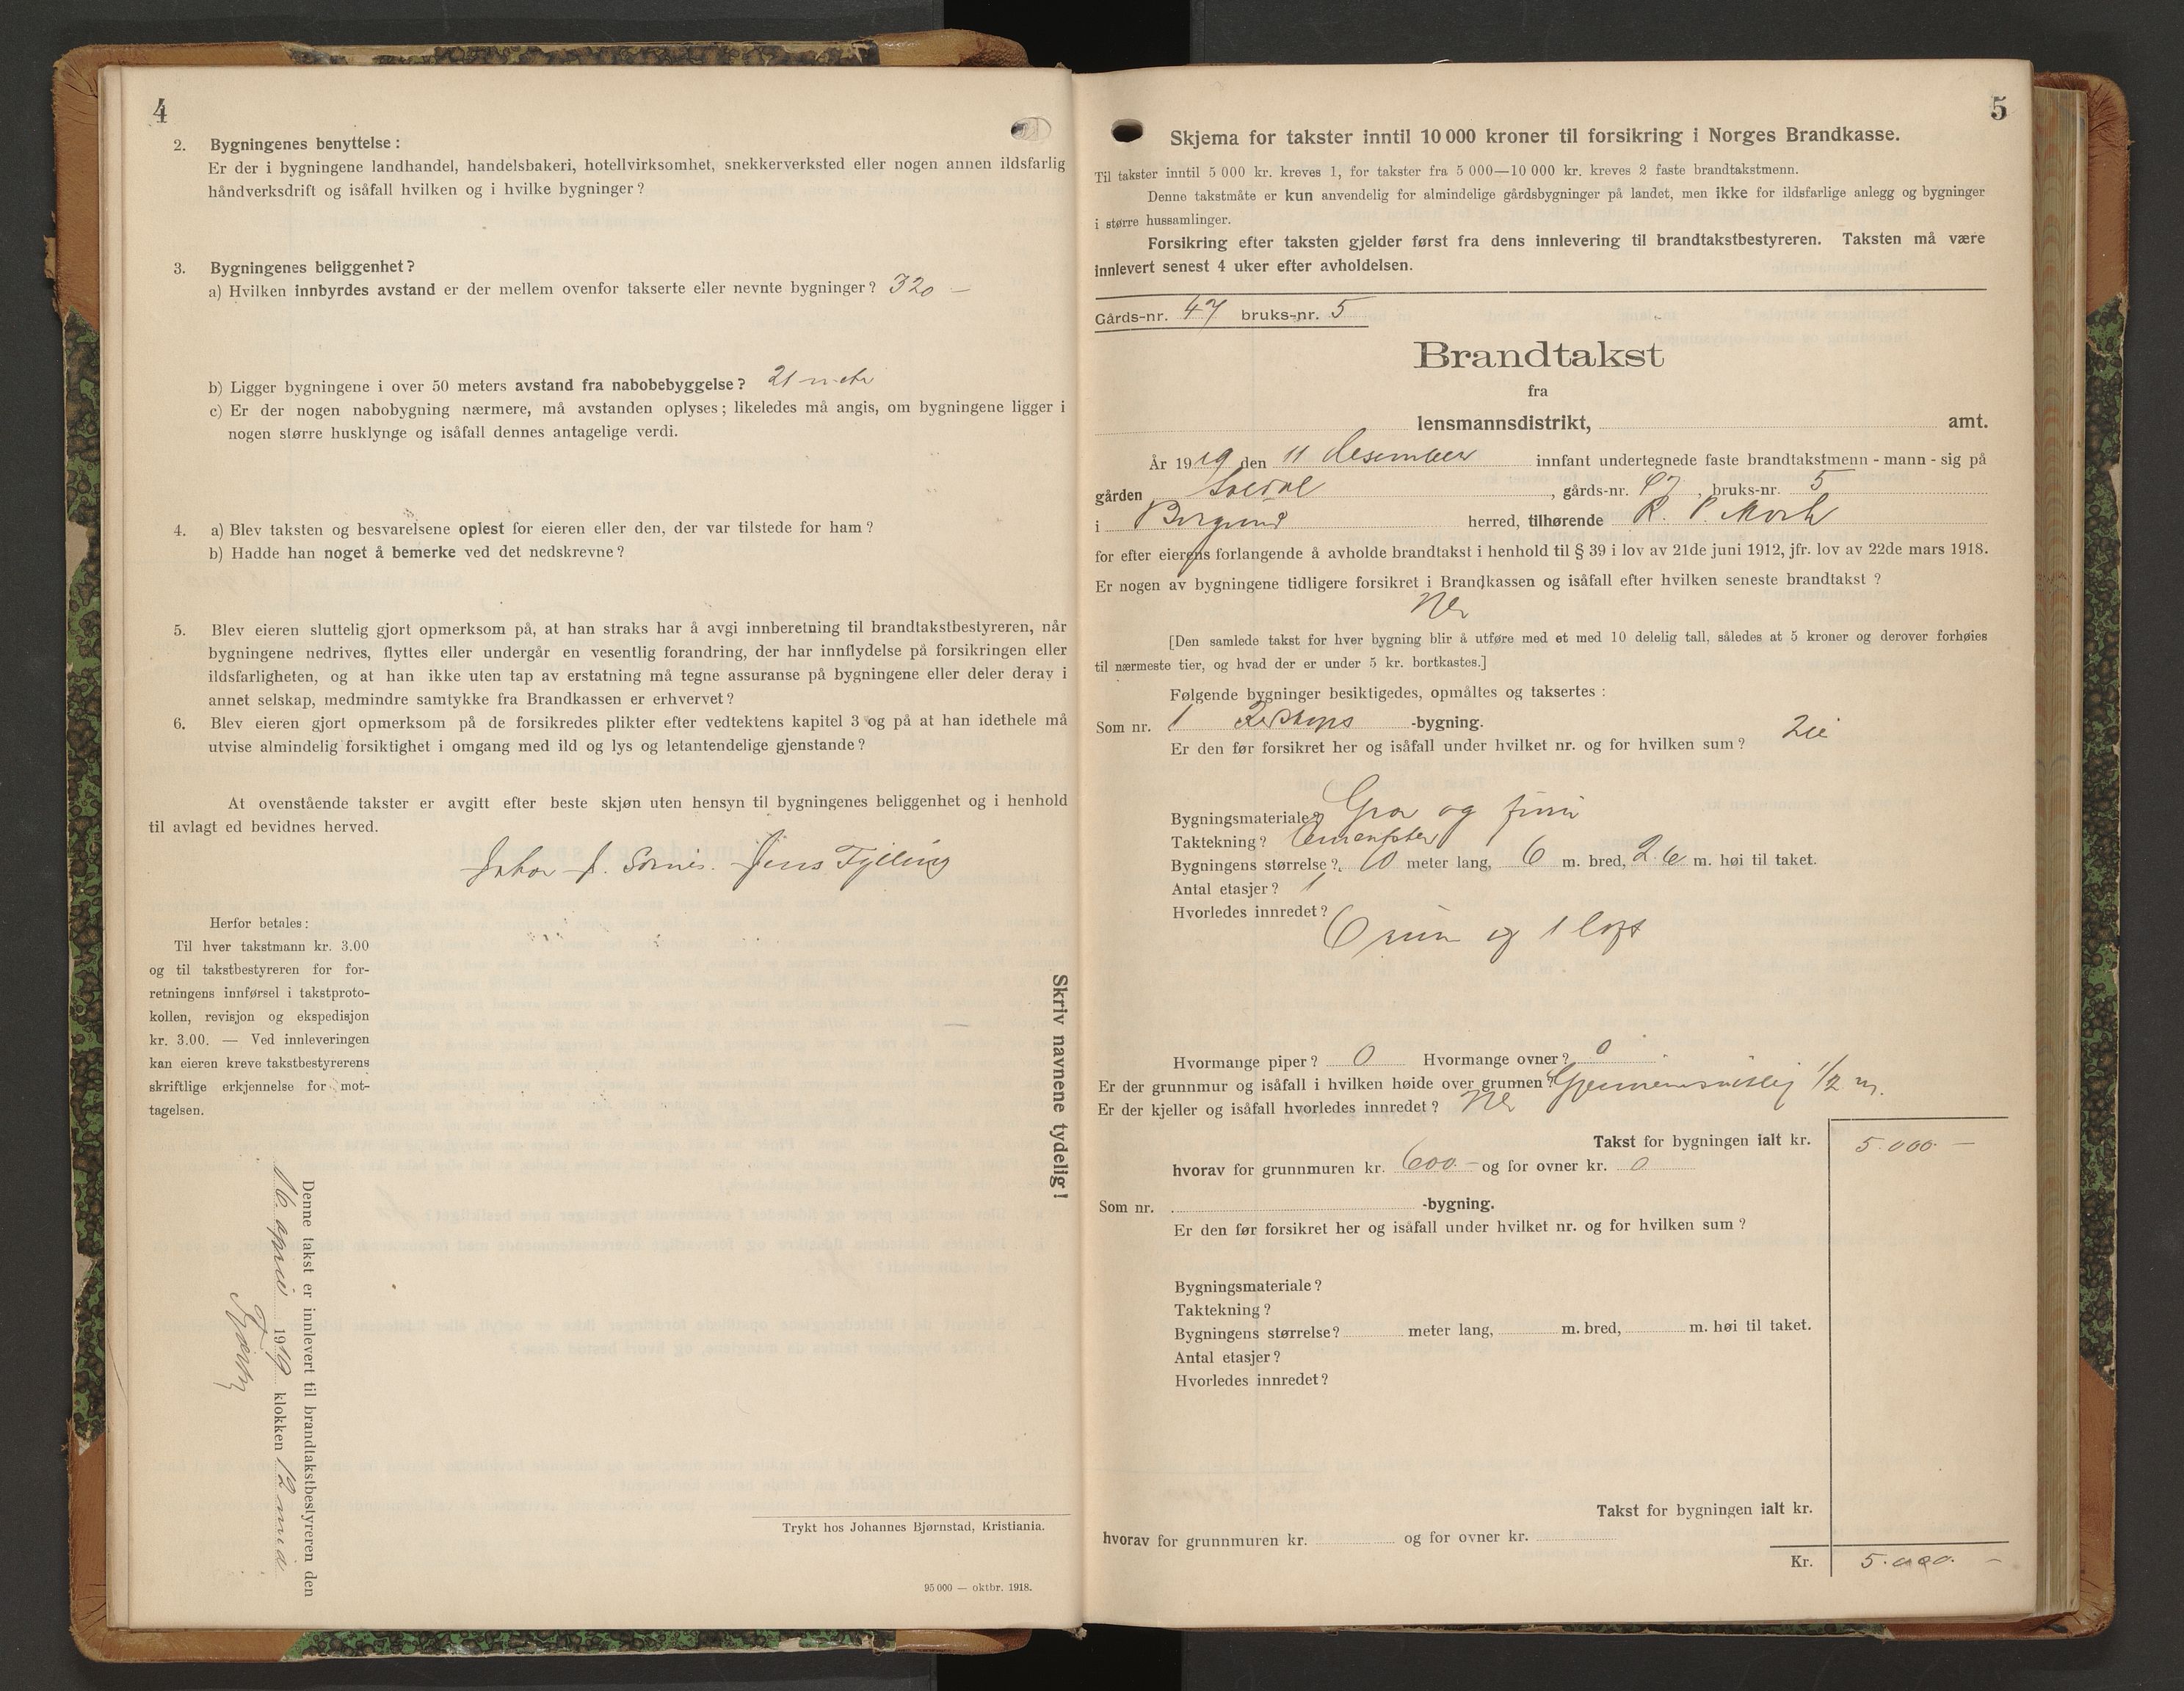 4
2. Bygningenes benyttelse:
Er der i bygningene landhandel, handelsbakeri, hotellvirksomhet, snekkerverksted eller nogen annen ildsfarlig
håndverksdrift og isåfall hvilken og i hvilke bygninger?
3. Bygningenes beliggenhet?
a) Hvilken innbyrdes avstand er der mellem ovenfor takserte eller nevnte bygninger? 320 —
b) Ligger bygningene i over 50 meters avstand fra nabobebyggelse? 21 meter
c) Er der nogen nabobygning nærmere, må avstanden oplyses; likeledes må angis, om bygningene ligger i
nogen større husklynge og isåfall dennes antagelige verdi.
4. a) Blev taksten og besvarelsene oplest for eieren eller den, der var tilstede for ham?
b) Hadde han noget å bemerke ved det nedskrevne?
5. Blev eieren sluttelig gjort opmerksom på, at han straks har å avgi innberetning til brandtakstbestyreren, når
bygningene nedrives, flyttes eller undergår en vesentlig forandring, der har innflydelse på forsikringen eller
ildsfarligheten, og at han ikke uten tap av erstatning må tegne assuranse på bygningene eller deler derav i
annet selskap, medmindre samtykke fra Brandkassen er erhvervet?
6. Blev eieren gjort opmerksom på de forsikredes plikter efter vedtektens kapitel 3 og på at han idethele må
utvise almindelig forsiktighet i omgang med ild og lys og letantendelige gjenstande?
At ovenstående takster er avgitt efter beste skjøn uten hensyn til bygningenes beliggenhet og i henhold
til avlagt ed bevidnes herved.
J. Jens
Herfor betales:
Til hver takstmann kr. 3.00
og til takstbestyreren for for-
retningens innførsel i takstproto-
kollen, revisjon og ekspedisjon
kr. 3.00. — Ved innleveringen
kan eieren kreve takstbestyrerens
skriftlige erkjennelse for mot-
tagelsen.
Denne takst er innlevert til brandtakstbestyreren den
16. april 1919 klokken 12 mid
Skriv navnene tydelig!
Trykt hos Johannes Bjørnstad, Kristiania.
95 000 — oktbr. 1918.
5
Skjema for takster inntil 10 000 kroner til forsikring i Norges Brandkasse.
Til takster inntil 5 000 kr. kreves 1, for takster fra 5 000—10 000 kr. kreves 2 faste brandtakstmenn.
Denne takstmåte er kun anvendelig for almindelige gårdsbygninger på landet, men ikke for ildsfarlige anlegg og bygninger
i større hussamlinger.
Forsikring efter taksten gjelder først fra dens innlevering til brandtakstbestyreren. Taksten må være
innlevert senest 4 uker efter avholdelsen.
Gårds-nr. 47 bruks-nr. 5
Brandtakst
fra
lensmannsdistrikt, amt.
År 1919 den 11 desember innfant undertegnede faste brandtakstmenn - mann - sig på
gården , gårds-nr. 47, bruks-nr. 5
i Borgund herred, tilhørende R. P. Mork
for efter eierens forlangende å avholde brandtakst i henhold til § 39 i lov av 21de juni 1912, jfr. lov av 22de mars 1918.
Er nogen av bygningene tidligere forsikret i Brandkassen og isåfall efter hvilken seneste brandtakst?
Nei
[Den samlede takst for hver bygning blir å utføre med et med 10 delelig tall, således at 5 kroner og derover forhøies
til nærmeste tier, og hvad der er under 5 kr. bortkastes.]
Følgende bygninger besiktigedes, opmåltes og taksertes:
Som nr. 1 Redskaps -bygning.
Er den før forsikret her og isåfall under hvilket nr. og for hvilken sum? Nei
Bygningsmateriale? Gran og furu
Taktekning?
Bygningens størrelse? 10 meter lang, 6 m. bred, 2.6 m. høi til taket.
Antal etasjer? 1
Hvorledes innredet? 6 rum og 1 loft
Hvormange piper? 0 Hvormange ovner? 0
Er der grunnmur og isåfall i hvilken høide over grunnen? Gjennemsnitlig 1/2 m.
Er der kjeller og isåfall hvorledes innredet? Nei
Takst for bygningen ialt kr. 5.000 —
hvorav for grunnmuren kr. 600 — og for ovner kr. 0
Som nr. -bygning.
Er den før forsikret her og isåfall under hvilket nr. og for hvilken sum?
Bygningsmateriale?
Taktekning?
Bygningens størrelse? meter lang, m. bred, m. høi til taket.
Antal etasjer?
Hvorledes innredet?
Takst for bygningen ialt kr.
hvorav for grunnmuren kr. og for ovner kr.
Kr. 5.000. —